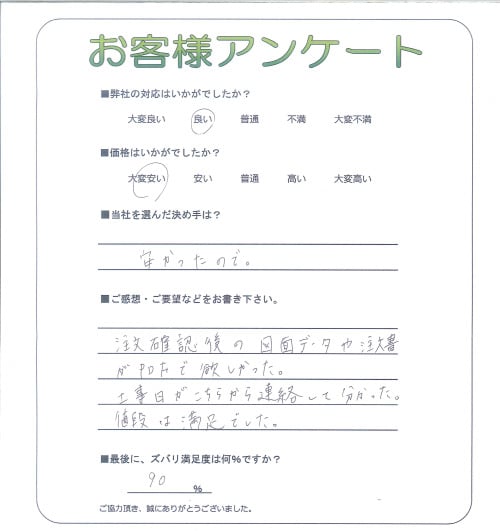 お客様アンケート
■弊社の対応はいかがでしたか？
大変良い 良い 普通 不満 大変不満
■価格はいかがでしたか？
大変安い 安い 普通 高い 大変高い
■当社を選んだ決め手は？
安かったので。
■ご感想・ご要望などをお書き下さい。
注文確認後の図面データや注文書
がPDFで欲しかった。
工事日がこちらから連絡して分かった。
値段は満足でした。
■最後に、ズバリ満足度は何％ですか？
90 ％
ご協力頂き、誠にありがとうございました。